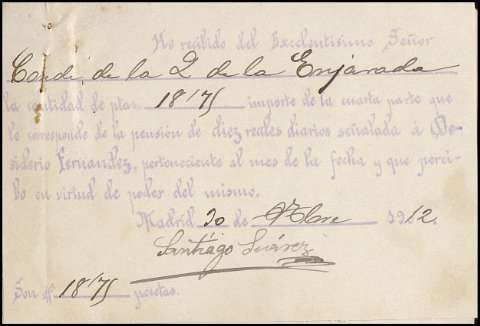 He recibido del Excelentisimo Señor
Conde de la Q de la Enjarada
la cantidad de ptas 18'75 importe de la cuarta parte que
le corresponde de la pensión de diez reales diarios señalada á De-
siderio Fernandez, perteneciente al mes de la fecha y que perci-
bo en virtud de poder del mismo.
Madrid 30 de 1912,
Santiago Suárez
Son # 18'75 pesetas.